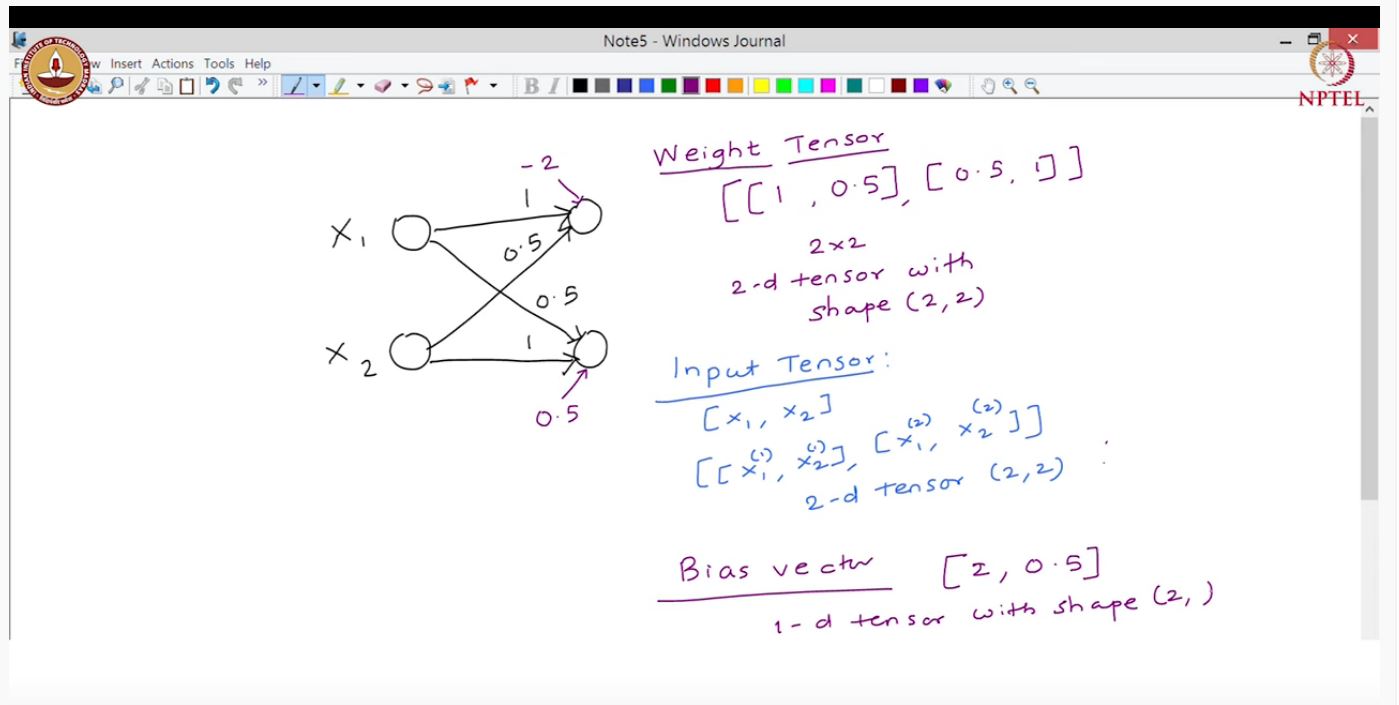 Note5 - Windows Journal
Insert Actions Tools Help
B I
NPTEL
-2
1
X1
0.5
0.5
X2
1
0.5
Weight Tensor
[[1, 0.5], [0.5, 1]]
2×2
2-d tensor with
shape (2,2)
Input Tensor:
[x1, x2]
[[x1(1), x2(1)], [x1(2), x2(2)]]
2-d tensor (2,2)
Bias vector [2, 0.5]
1-d tensor with shape (2, )